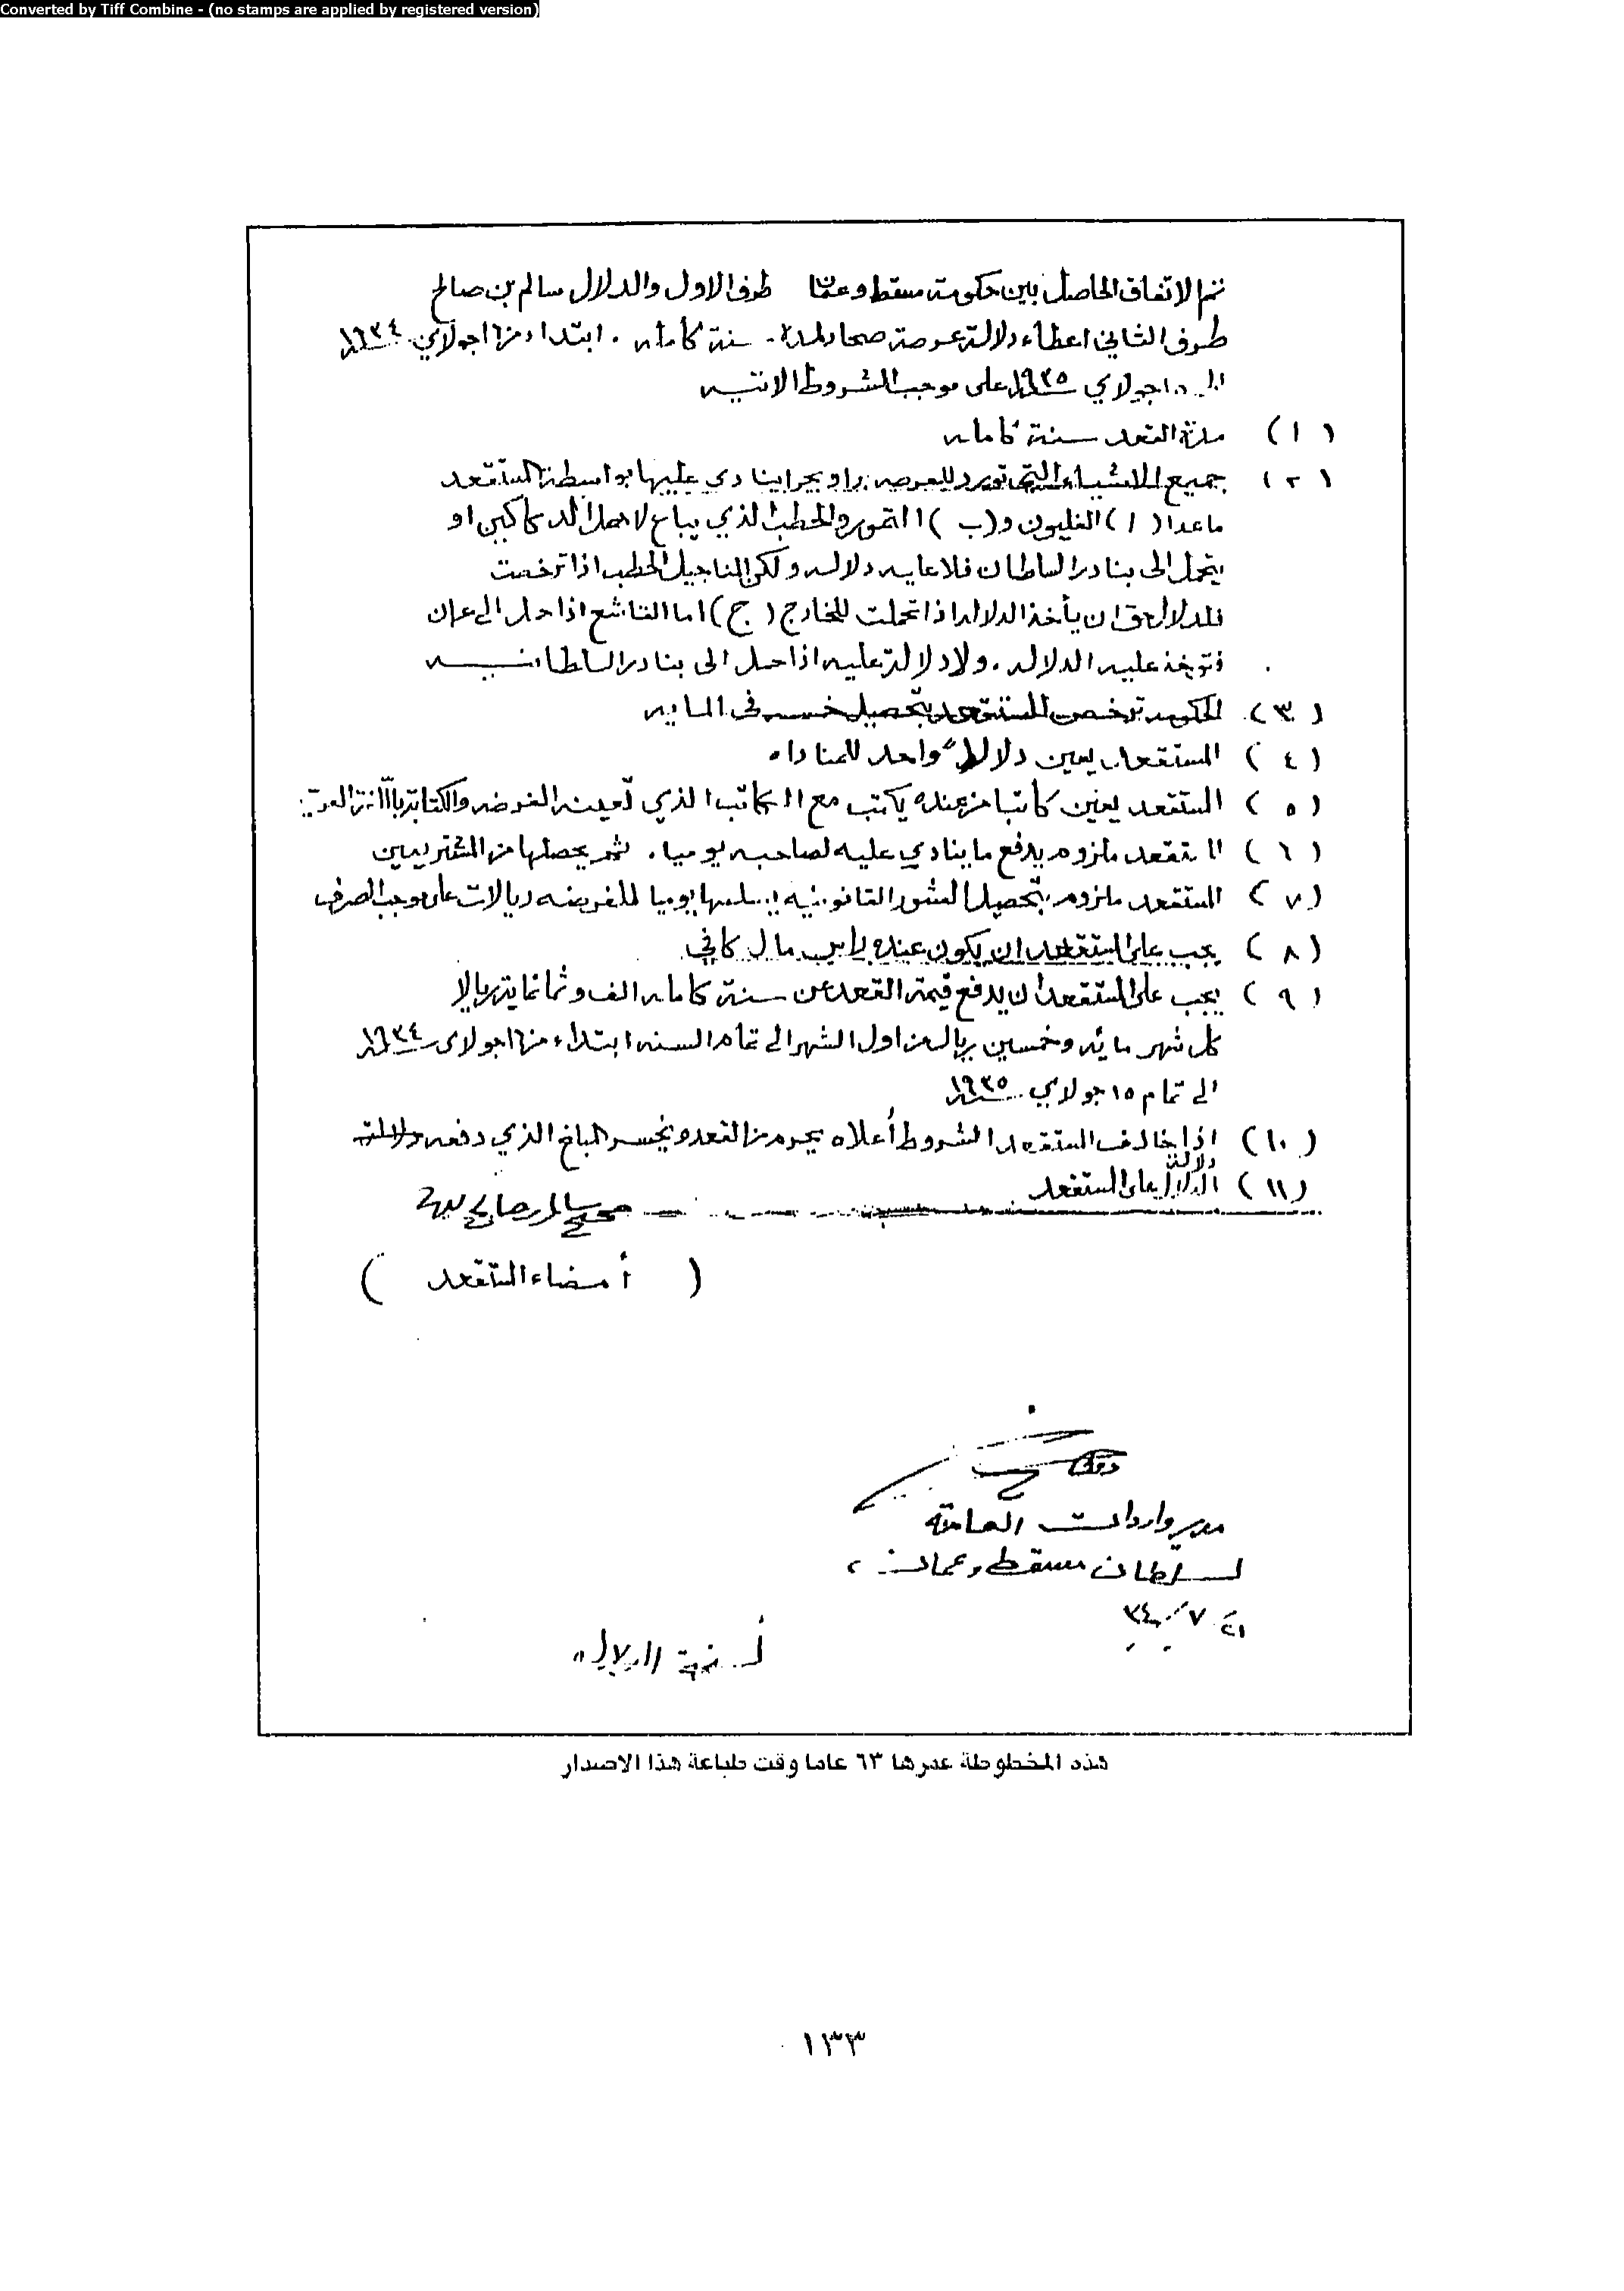 Converted by Tiff Combine - (no stamps are applied by registered version)
تم الاتفاق الحاصل بين حكومة مسقط وعمان طرف الاول والدلال سالم بن صالح
طرف الثاني اعطاء دلالة عرصة صحار لمدة سنة كامله . ابتداء من ١٦ جولاي سنة ١٩٣٤
الى ١٥ جولاي سنة ١٩٣٥ على موجب الشروط الاتيه
(١) مدة القعد سنة كامله
(٢) جميع الاشياء التي تورد للعرصه برا وبحرا ينادي عليها بواسطة المستقعد
ماعدا (ا) الغليون و(ب) التمور والحطب الذي يباع لاهل الدكاكين او
يتحمل الى بنادر السلطان فلا عليه دلاله ولكن الناجيل الحطب اذا ترخصت
فللدلال حق ان يأخذ الدلاله اذا تحملت للخارج (ج) اما القاشع اذا حمل الى عمان
فتوخذ عليه الدلاله . ولا دلالة عليه اذا حمل الى بنادر السلطانيه
(٣) الحكومه ترخص للمستقعد بتحصيل خمسه في المايه
(٤) المستقعد يعين دلالاً واحد للمناداه
(٥) المستقعد يعين كاتبا من عنده يكتب مع الكاتب الذي تعينه الفرضه والكتابة باللغة العربيه
(٦) المستقعد ملزوم يدفع ما ينادي عليه لصاحبه يوميا . ثم يحصلها من المشتريين
(٧) المستقعد ملزوم بتحصيل العشور القانونيه يسلمها يوميا للفرضه ريالات على موجب الصرف
(٨) يجب على المستقعد ان يكون عنده راس مال كافي
(٩) يجب على المستقعد ان يدفع قيمة القعد عن سنة كامله الف وثمانماية ريالا
كل شهر مائه وخمسين ريال من اول الشهر الى تمام السنه ابتداء من ١٦ جولاى سنة ١٩٣٤
الى تمام ١٥ جولاي سنة ١٩٣٥
(١٠) اذا خالف المستقعد الشروط أعلاه يحرم من القعد ويخسر المبلغ الذي دفعه
(١١) دلالة الدلال على المستقعد
صحيح سالم بن صالح بيده
( أمضاء المستقعد )
مدير واردات العامة
لسلطان مسقط وعمان
نسخة الدلال
هذه المخطوطة عمرها ٦٣ عاما وقت طباعة هذا الاصدار
١٣٣